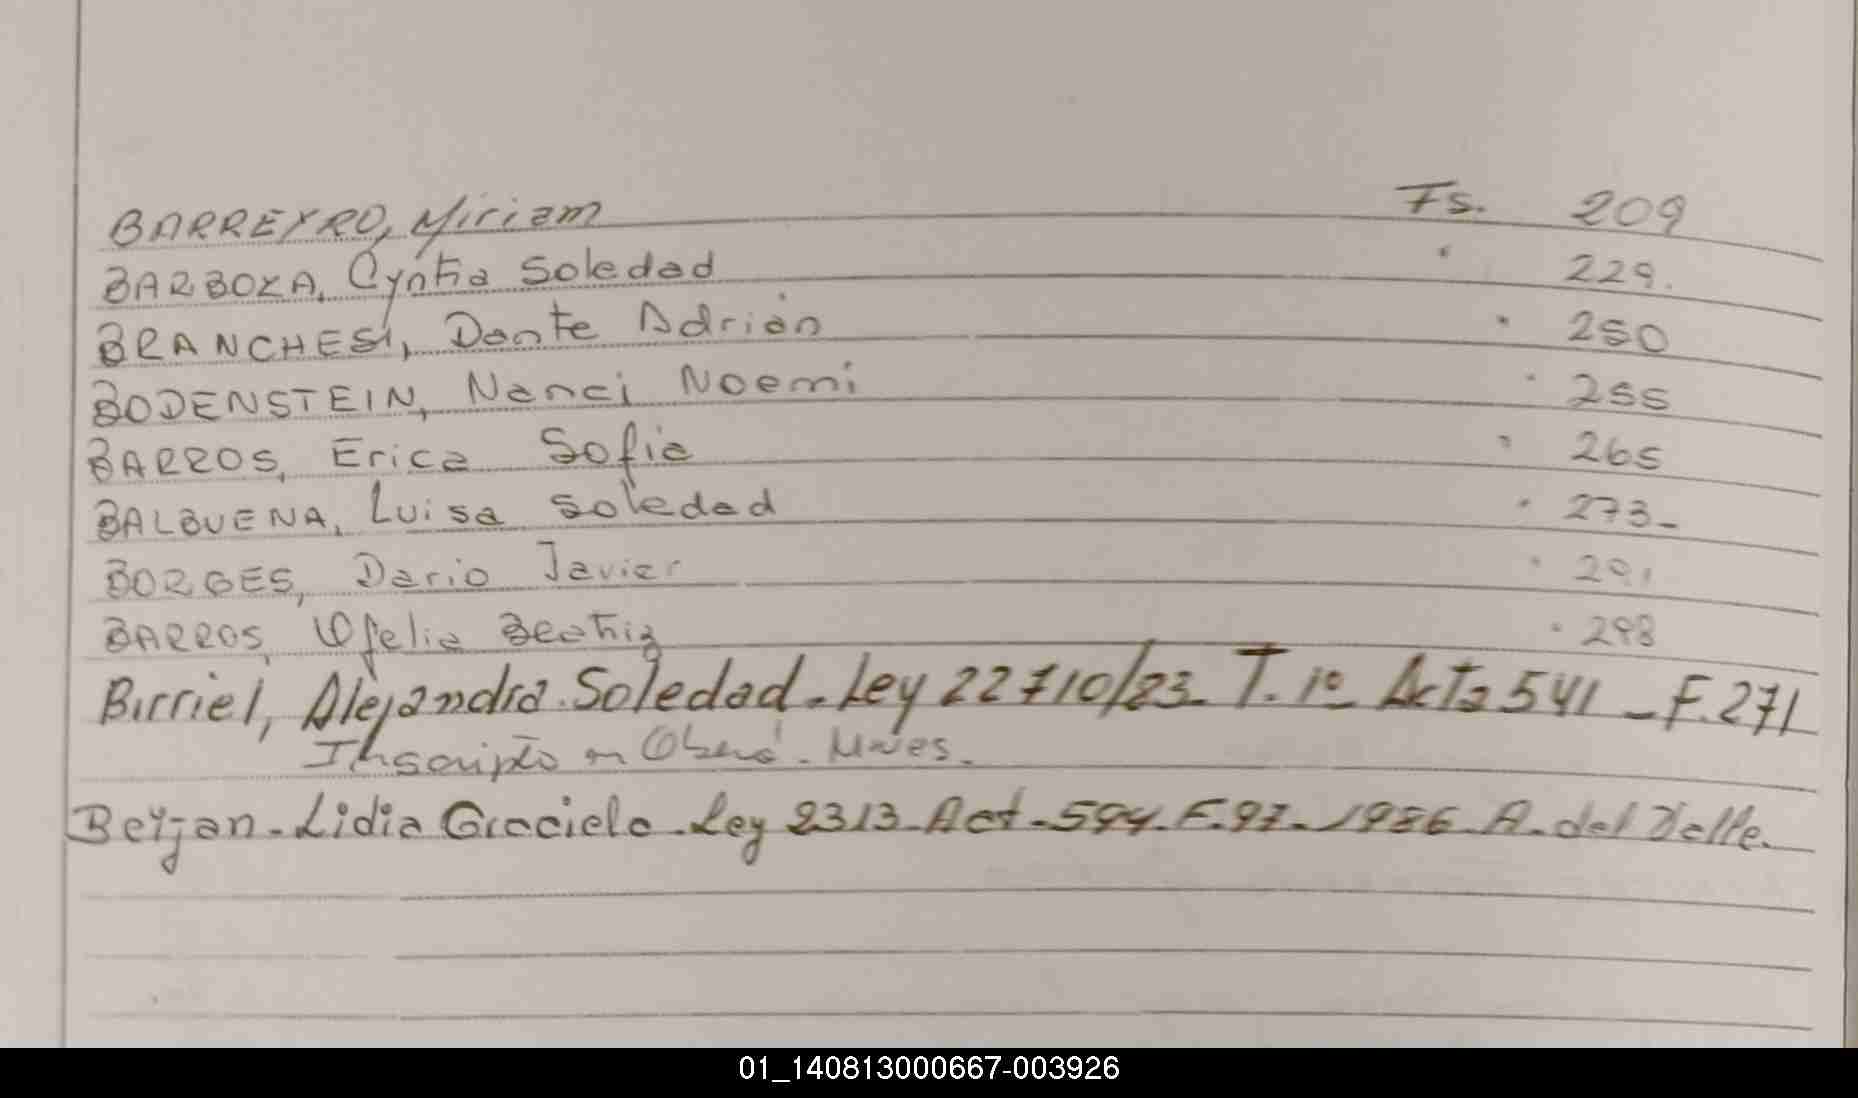 BARREYRO, Miriam Fs. 209
BARBOZA, Cyntia Soledad " 229.
BRANCHESI, Dante Adrián " 250
BODENSTEIN, Nanci Noemi " 255
BARROS, Erica Sofia " 265
BALBUENA, Luisa Soledad " 273-
BORGES, Dario Javier " 291
BARROS, Ofelia Beatriz " 298
Birriel, Alejandra Soledad - Ley 22710/23 - T. 1º Acta 541 - F. 271
Inscripto en Oberá -
Beyjan - Lidia Graciela - Ley 2313 - Act - 594 - F. 97 - 1986 A. del Valle.
01_140813000667-003926